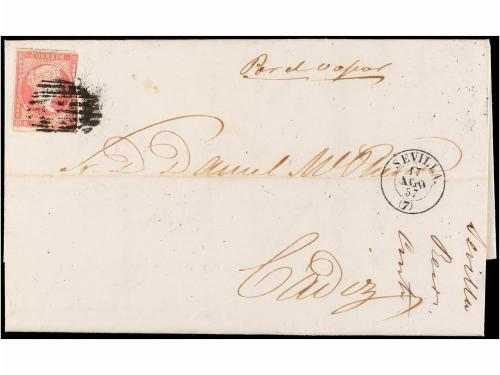 CORREOS
Por el vapor
S. D. Daniel
SEVILLA
17
AGO
57
(7)
Cadiz
Sevilla